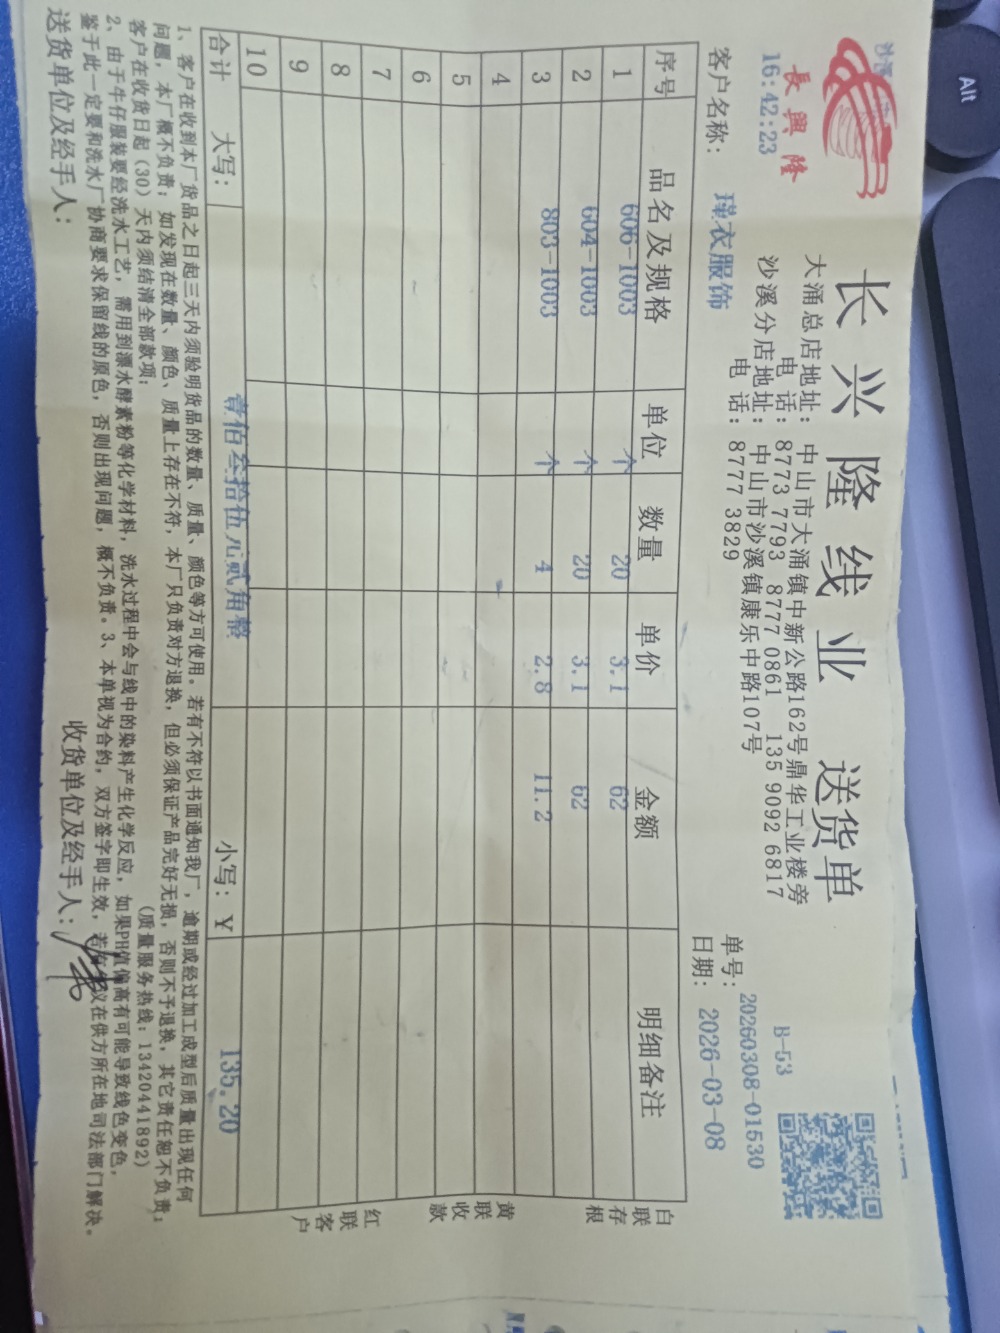 長興隆
16:42:23
长兴隆线业 送货单
大涌总店地址: 中山市大涌镇中新公路162号鼎华工业楼旁
电 话: 8773 7793 8777 0861 135 9092 6817
沙溪分店地址: 中山市沙溪镇康乐中路107号
电 话: 8777 3829
B-53
单号: 20260308-01530
客户名称: 瑾衣服饰
日期: 2026-03-08
序号 品名及规格 单位 数量 单价 金额 明细备注
1 606-1003 个 20 3.1 62
2 604-1003 个 20 3.1 62
3 803-1003 个 4 2.8 11.2
4
5
6
7
8
9
10
合计 大写: 壹佰叁拾伍元贰角整 小写: ¥ 135.20
白联存根
黄联收款
红联客户
1、客户在收到本厂货品之日起三天内须验明货品的数量、质量、颜色等方可使用。若有不符以书面通知我厂，逾期或经过加工成型后质量出现任何
问题，本厂概不负责；如发现在数量、颜色、质量上存在不符，本厂只负责对方退换，但必须保证产品完好无损，否则不予退换，其它责任恕不负责;
客户在收货日起（30）天内须结清全部款项; (质量服务热线: 13420441892)
2、由于牛仔服装要经洗水工艺，需用到漂水酵素粉等化学材料，洗水过程中会与线中的染料产生化学反应，如果PH值偏高有可能导致线色变色，
鉴于此一定要和洗水厂协商要求保留线的原色，否则出现问题，概不负责。3、本单视为合约，双方签字即生效，若有 议在供方所在地司法部门解决。
送货单位及经手人: 收货单位及经手人:
Alt